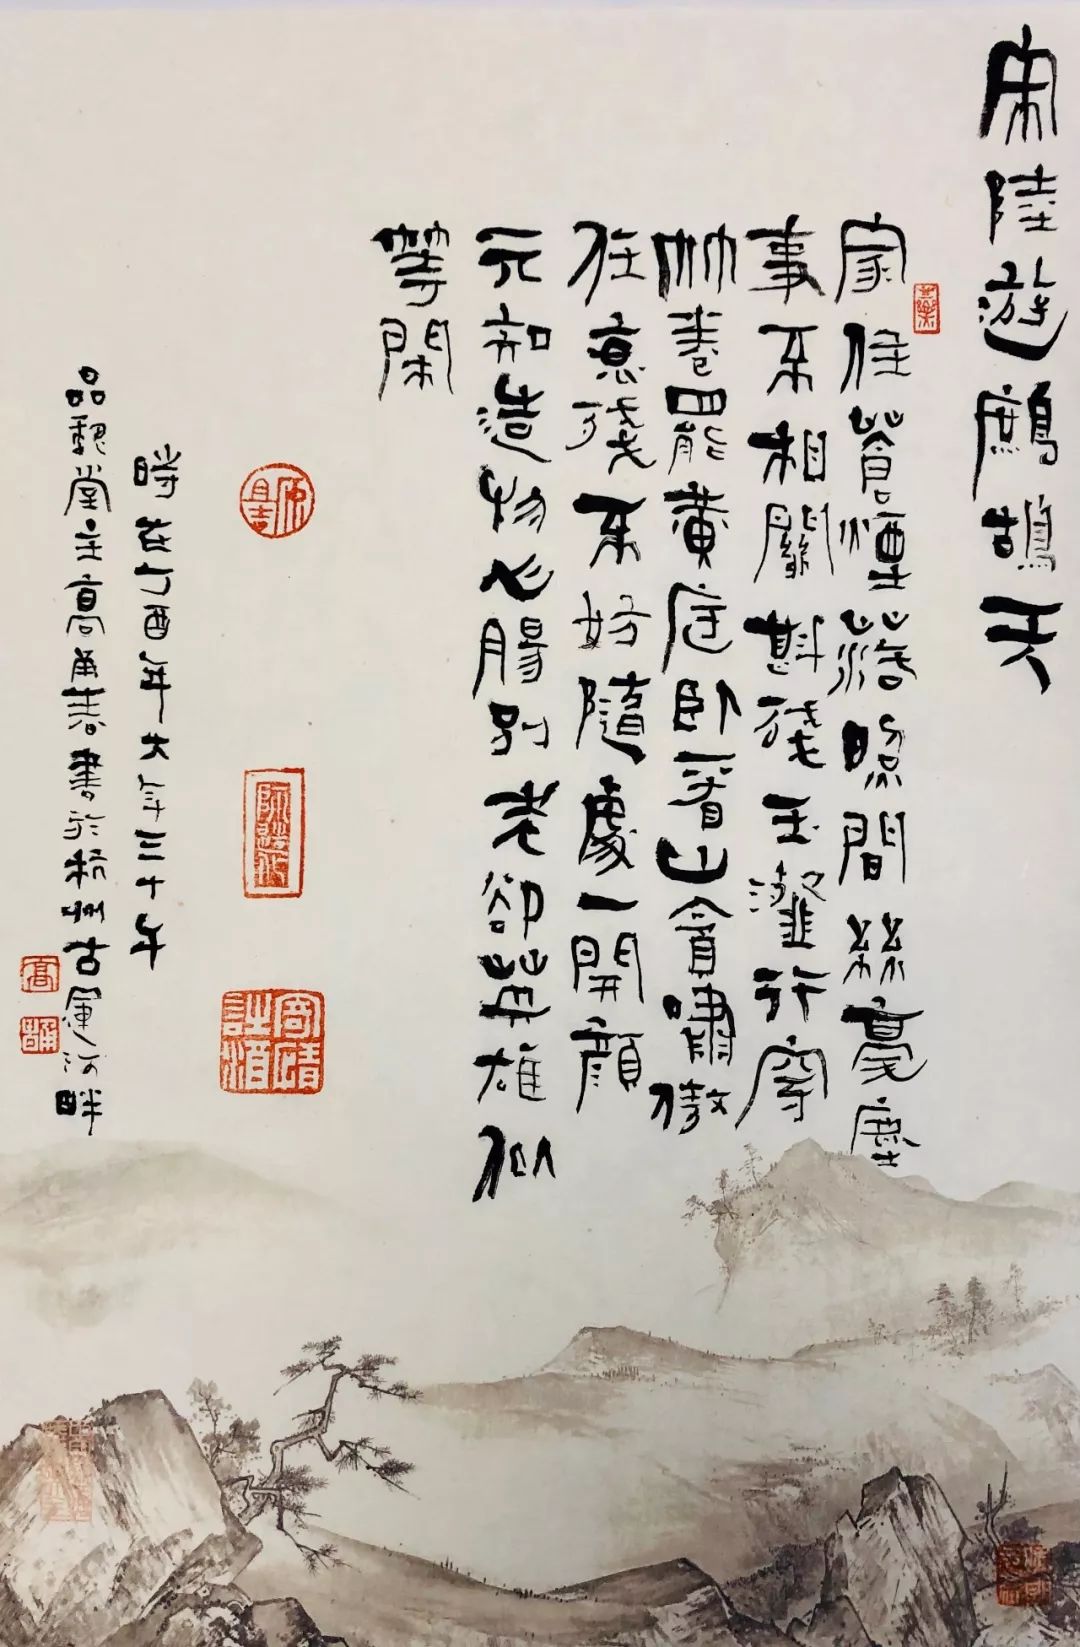 宋陸遊鷓鴣天
家住蒼煙落照間絲豪塵
事不相關斟殘玉瀣行穿
竹卷罷黃庭卧看山貪嘯傲
任衰殘不妨隨處一開顏
元知造物心腸別老卻英雄似
等閑
時在丁酉年大年三十午
品魏堂主高甬春書於杭州古運河畔
寄情詩酒
高